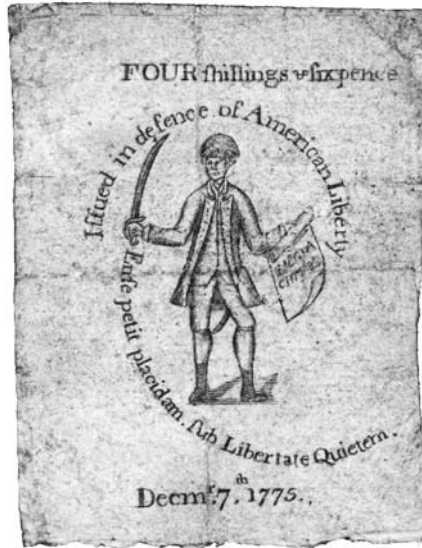 FOUR ſhillings & ſixpence
Iſſued in defence of American Liberty
Enſe petit placidam. ſub Libertate Quietem.
MAGNA
CHARTA
Decmr. 7th. 1775.